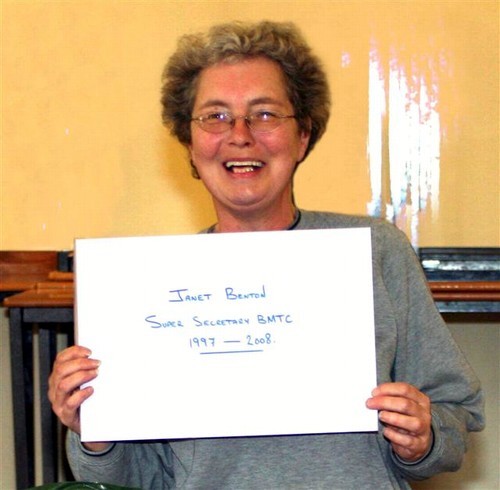 Janet Benton
Super Secretary BMTC
1997 — 2008.